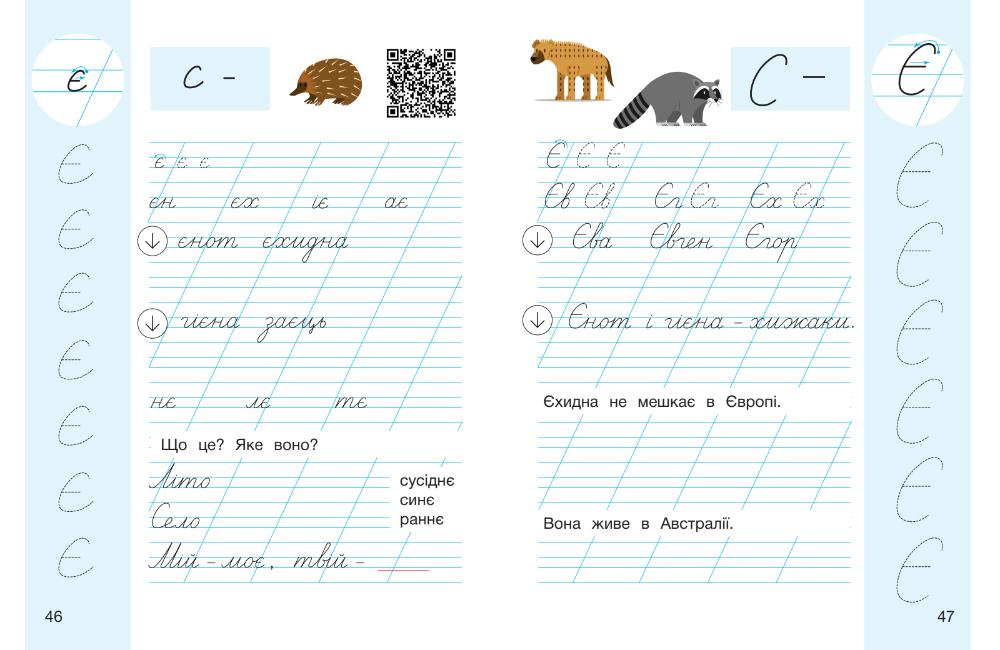 є
с -
є є є
єн єх іє ає
єнот єхидна
гієна заєць
нє лє тє
Що це? Яке воно?
Літо
Село
сусіднє
синє
раннє
Мій - моє, твій -
Є
Є
Є
Є
Є
Є
Є
46
С —
Є
Є Є Є
Єв Єв Єг Єг Єх Єх
Єва Євген Єгор
Єнот і гієна - хижаки.
Єхидна не мешкає в Європі.
Вона живе в Австралії.
Є
Є
Є
Є
Є
Є
47